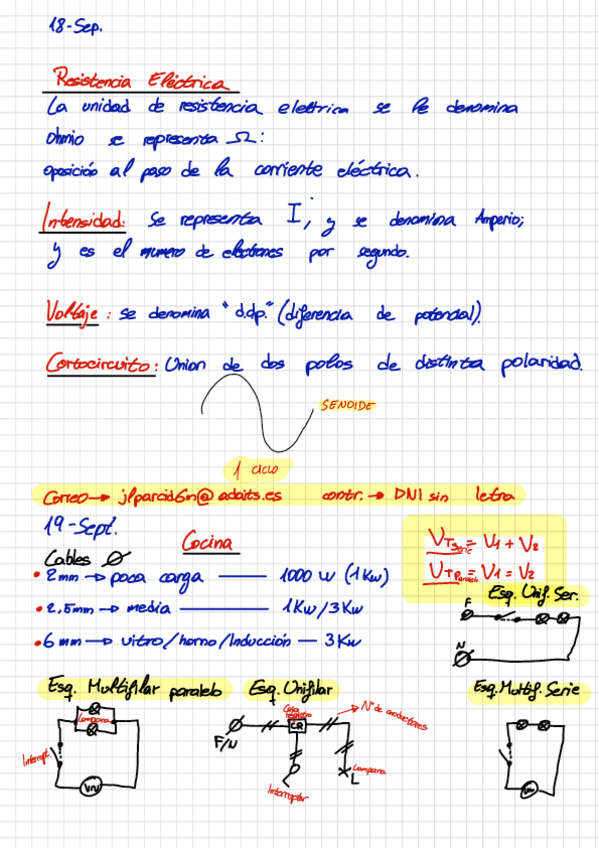 18-Sep.
Resistencia Eléctrica
La unidad de resistencia elettrica se le denomina
Ohmio se representa Ω:
oposició al paso de la corriente eléctrica.
Intensidad: Se representa I, y se denomina Amperio;
y es el numero de electrones por segundo.
Voltaje: se denomina "d.d.p." (diferencia de potencial).
Cortocircuito: Union de dos polos de distinta polaridad.
SENOIDE
1 ciclo
Correo → jlparcid6n@adaits.es contr. → DNI sin letra
19-Sept.
Cocina
Cables Ø
• 2mm → poca carga — 1000 W (1Kw)
• 2,5mm → media — 1Kw/3Kw
• 6mm → vitro/horno/Inducción — 3Kw
VT Serie = V1 + V2
VTp Paralelo = V1 = V2
Esq. Unif. Ser.
F
N
Esq. Multifilar paralelo
Lampara
Interrupt.
Esq. Unifilar
Caja registro
CR
Nº de conductores
F/N
Interruptor
Lampara
L
Esq. Multif. Serie